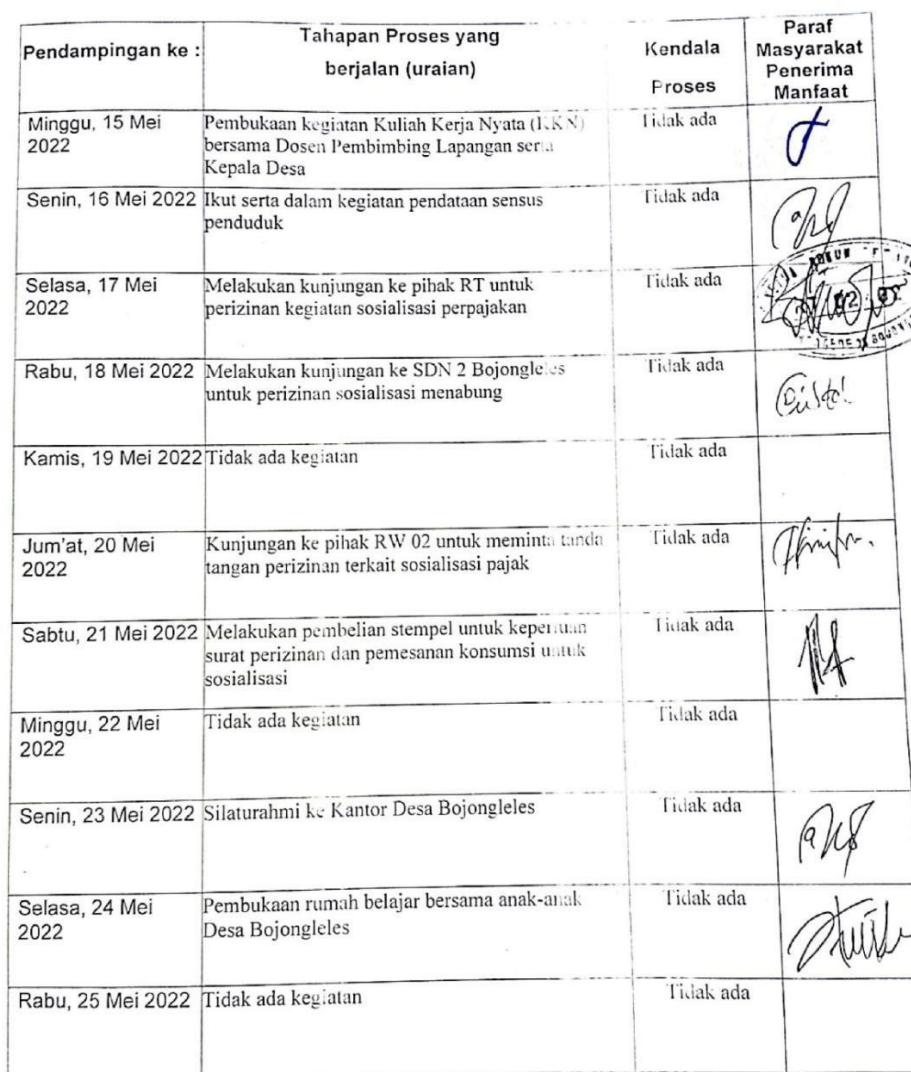 Pendampingan ke :
Tahapan Proses yang
berjalan (uraian)
Kendala
Proses
Paraf
Masyarakat
Penerima
Manfaat
Minggu, 15 Mei
2022
Pembukaan kegiatan Kuliah Kerja Nyata (KKN)
bersama Dosen Pembimbing Lapangan serta
Kepala Desa
Tidak ada
Senin, 16 Mei 2022
Ikut serta dalam kegiatan pendataan sensus
penduduk
Tidak ada
Selasa, 17 Mei
2022
Melakukan kunjungan ke pihak RT untuk
perizinan kegiatan sosialisasi perpajakan
Tidak ada
Rabu, 18 Mei 2022
Melakukan kunjungan ke SDN 2 Bojongleles
untuk perizinan sosialisasi menabung
Tidak ada
Kamis, 19 Mei 2022
Tidak ada kegiatan
Tidak ada
Jum'at, 20 Mei
2022
Kunjungan ke pihak RW 02 untuk meminta tanda
tangan perizinan terkait sosialisasi pajak
Tidak ada
Sabtu, 21 Mei 2022
Melakukan pembelian stempel untuk keperluan
surat perizinan dan pemesanan konsumsi untuk
sosialisasi
Tidak ada
Minggu, 22 Mei
2022
Tidak ada kegiatan
Tidak ada
Senin, 23 Mei 2022
Silaturahmi ke Kantor Desa Bojongleles
Tidak ada
Selasa, 24 Mei
2022
Pembukaan rumah belajar bersama anak-anak
Desa Bojongleles
Tidak ada
Rabu, 25 Mei 2022
Tidak ada kegiatan
Tidak ada